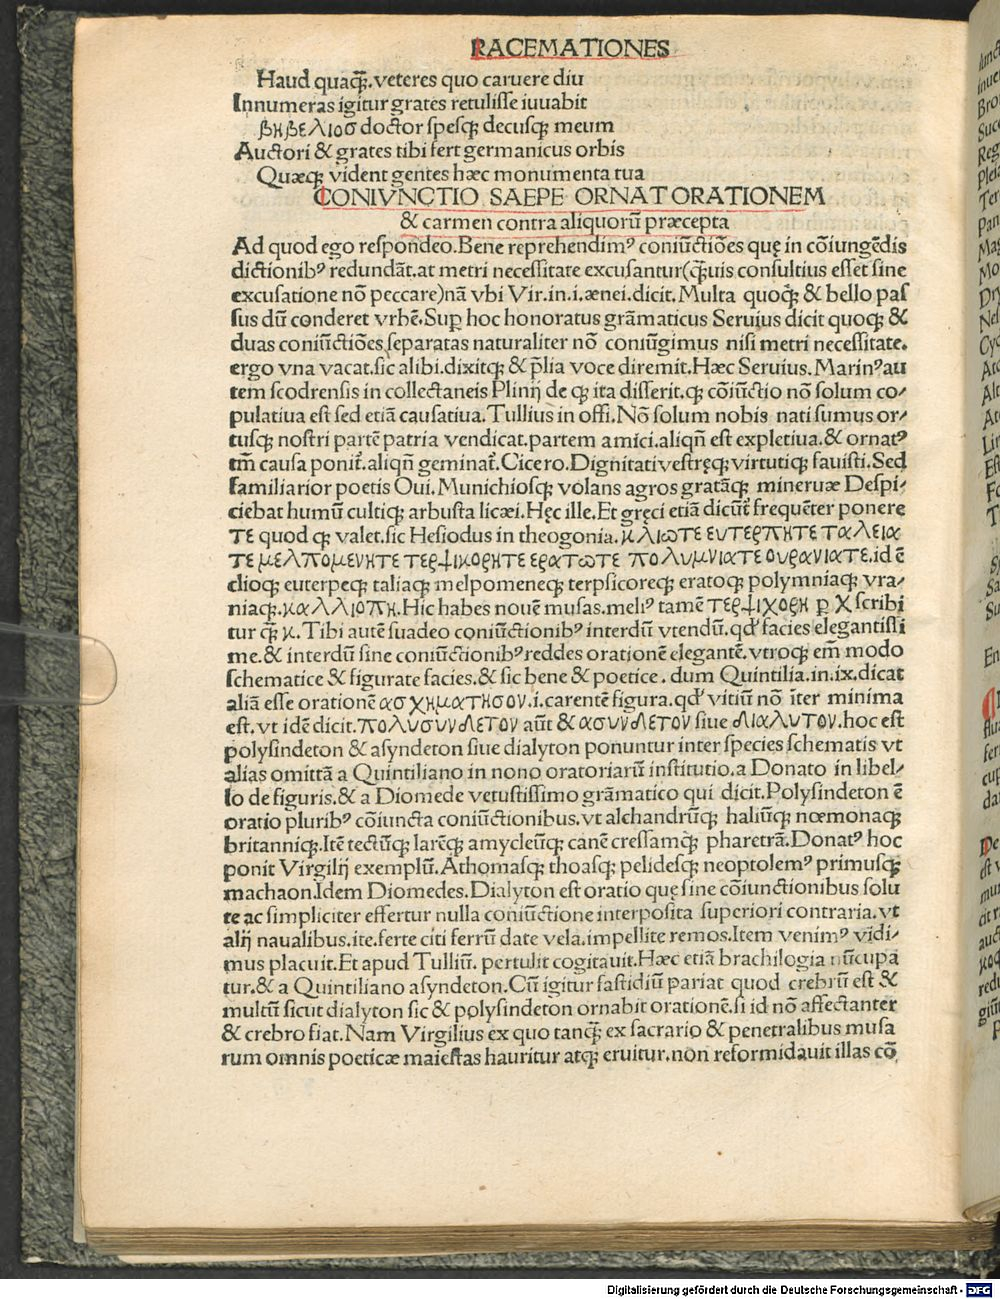 RACEMATIONES
Haud quaqꝫ̃.veteres quo caruere diu
Innumeras igitur grates retulisse iuuabit
βηβελιοσ doctor spesqꝫ decusqꝫ meum
Auctori & grates tibi fert germanicus orbis
Quæqꝫ vident gentes hæc monumenta tua
CONIVNCTIO SAEPE ORNAT ORATIONEM
& carmen contra aliquorũ præcepta
Ad quod ego respondeo.Bene reprehendimꝰ coniũctiões quę in cõiungẽdis
dictionibꝰ redundãt.at metri necessitate excusantur(qꝫ̃uis consultius esset sine
excusatione nõ peccare)nã vbi Vir.in.i.ænei.dicit.Multa quoqꝫ & bello pas
sus dũ conderet vrbẽ.Suꝑ hoc honoratus grãmaticus Seruius dicit quoqꝫ &
duas coniũctiões separatas naturaliter nõ coniũgimus nisi metri necessitate.
ergo vna vacat.sic alibi.dixitqꝫ & p̃lia voce diremit.Hæc Seruius.Marinꝰ au
tem scodrensis in collectaneis Plinij de qꝫ ita disserit.qꝫ cõiũctio nõ solum co/
pulatiua est sed etiã causatiua.Tullius in offi.Nõ solum nobis nati sumus or/
tusqꝫ nostri partẽ patria vendicat.partem amici.aliqñ est expletiua.& ornatꝰ
tm̃ causa ponit̃.aliqñ geminat̃.Cicero.Dignitati vestręqꝫ virtutiqꝫ fauisti.Sed
familiarior poetis Oui.Munichiosqꝫ volans agros gratãqꝫ mineruæ Despi/
ciebat humũ cultiqꝫ arbusta licæi.Hęc ille.Et gręci etiã dicũt̃ frequẽter ponere
τε quod qꝫ valet.sic Hesiodus in theogonia.κλιωτε ευτερπητε ταλεια
τε μελπομενητε τερψικορητε ερατωτε πολυμνιατε ουρανιατε.id ẽ
clioqꝫ euterpeqꝫ taliaqꝫ melpomeneqꝫ terpsicoreqꝫ eratoqꝫ polymniaqꝫ vra/
niaqꝫ.καλλιοπη.Hic habes nouẽ musas.meliꝰ tamẽ τερψιχορη ꝑ χ scribi
tur qꝫ̃ κ.Tibi autẽ suadeo coniũctionibꝰ interdũ vtendũ.qd' facies elegantissi
me.& interdũ sine coniũctionibꝰ reddes orationẽ elegantẽ.vtroqꝫ em̃ modo
schematice & figurate facies.& sic bene & poetice.dum Quintilia.in.ix.dicat
aliã esse orationẽ ασχηματησον.i.carentẽ figura.qd' vitiũ nõ ĩter minima
est.vt idẽ dicit.πολυσυνδετον aũt & ασυνδετον siue διαλυτον.hoc est
polysindeton & asyndeton siue dialyton ponuntur inter species schematis vt
alias omittã a Quintiliano in nono oratoriarũ institutio.a Donato in libel/
lo de figuris.& a Diomede vetustissimo grãmatico qui dicit.Polysindeton ẽ
oratio pluribꝰ cõiuncta coniũctionibus.vt alchandrũqꝫ haliũqꝫ nœmonaqꝫ
britanniqꝫ.Itẽ tectũqꝫ larẽqꝫ amycleũqꝫ canẽ cressamqꝫ pharetrã.Donatꝰ hoc
ponit Virgilij exemplũ.Athomasqꝫ thoasqꝫ pelidesqꝫ neoptolemꝰ primusqꝫ
machaon.Idem Diomedes.Dialyton est oratio quę sine cõiunctionibus solu
te ac simpliciter effertur nulla coniũctione interposita superiori contraria.vt
alij naualibus.ite.ferte citi ferrũ date vela.impellite remos.Item venimꝰ vidi/
mus placuit.Et apud Tulliũ.pertulit cogitauit.Hæc etiã brachilogia nũcupa
tur.& a Quintiliano asyndeton.Cũ igitur fastidiũ pariat quod crebrũ est &
multũ sicut dialyton sic & polysindeton ornabit orationẽ.si id nõ affectanter
& crebro fiat.Nam Virgilius ex quo tanqꝫ̃ ex sacrario & penetralibus musa
rum omnis poeticæ maiestas hauritur atqꝫ eruitur.non reformidauit illas cõ
Digitalisierung gefördert durch die Deutsche Forschungsgemeinschaft - DFG